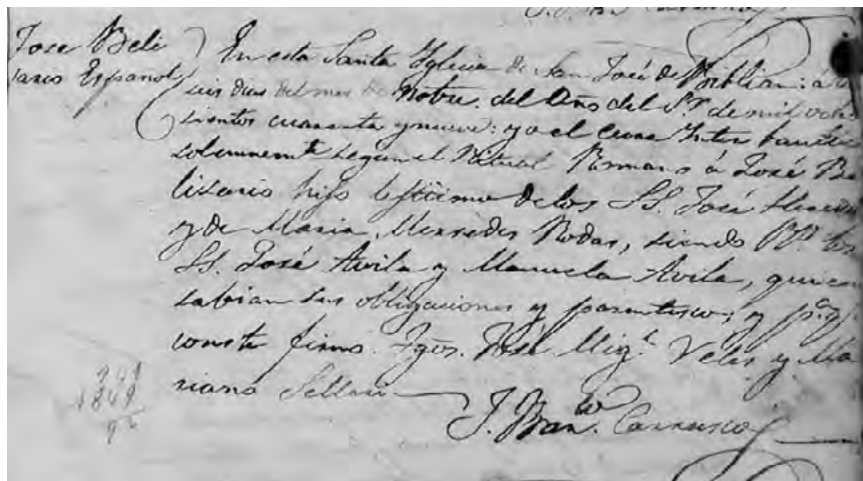 Jose Beli
sario Español
En esta Santa Yglecia de San José de Biblian: á
seis dias del mes de Nobre. del Año del Sr. de mil ocho
sientos cuarenta y nueve: yo el Cura Inter bautisé
solemnemte. segun el Ritual Romano á José Be
lisario hijo lejitimo de los SS. José
y de Maria Mercedes Rodas, siendo PPs. los
SS. José Avila y Manuela Avila, quienes
sabian sus obligaciones y parentesco; y pa. qe.
conste firmo. Tgos. José Migl. Veles y Ma
riano
J. Carrasco
1849